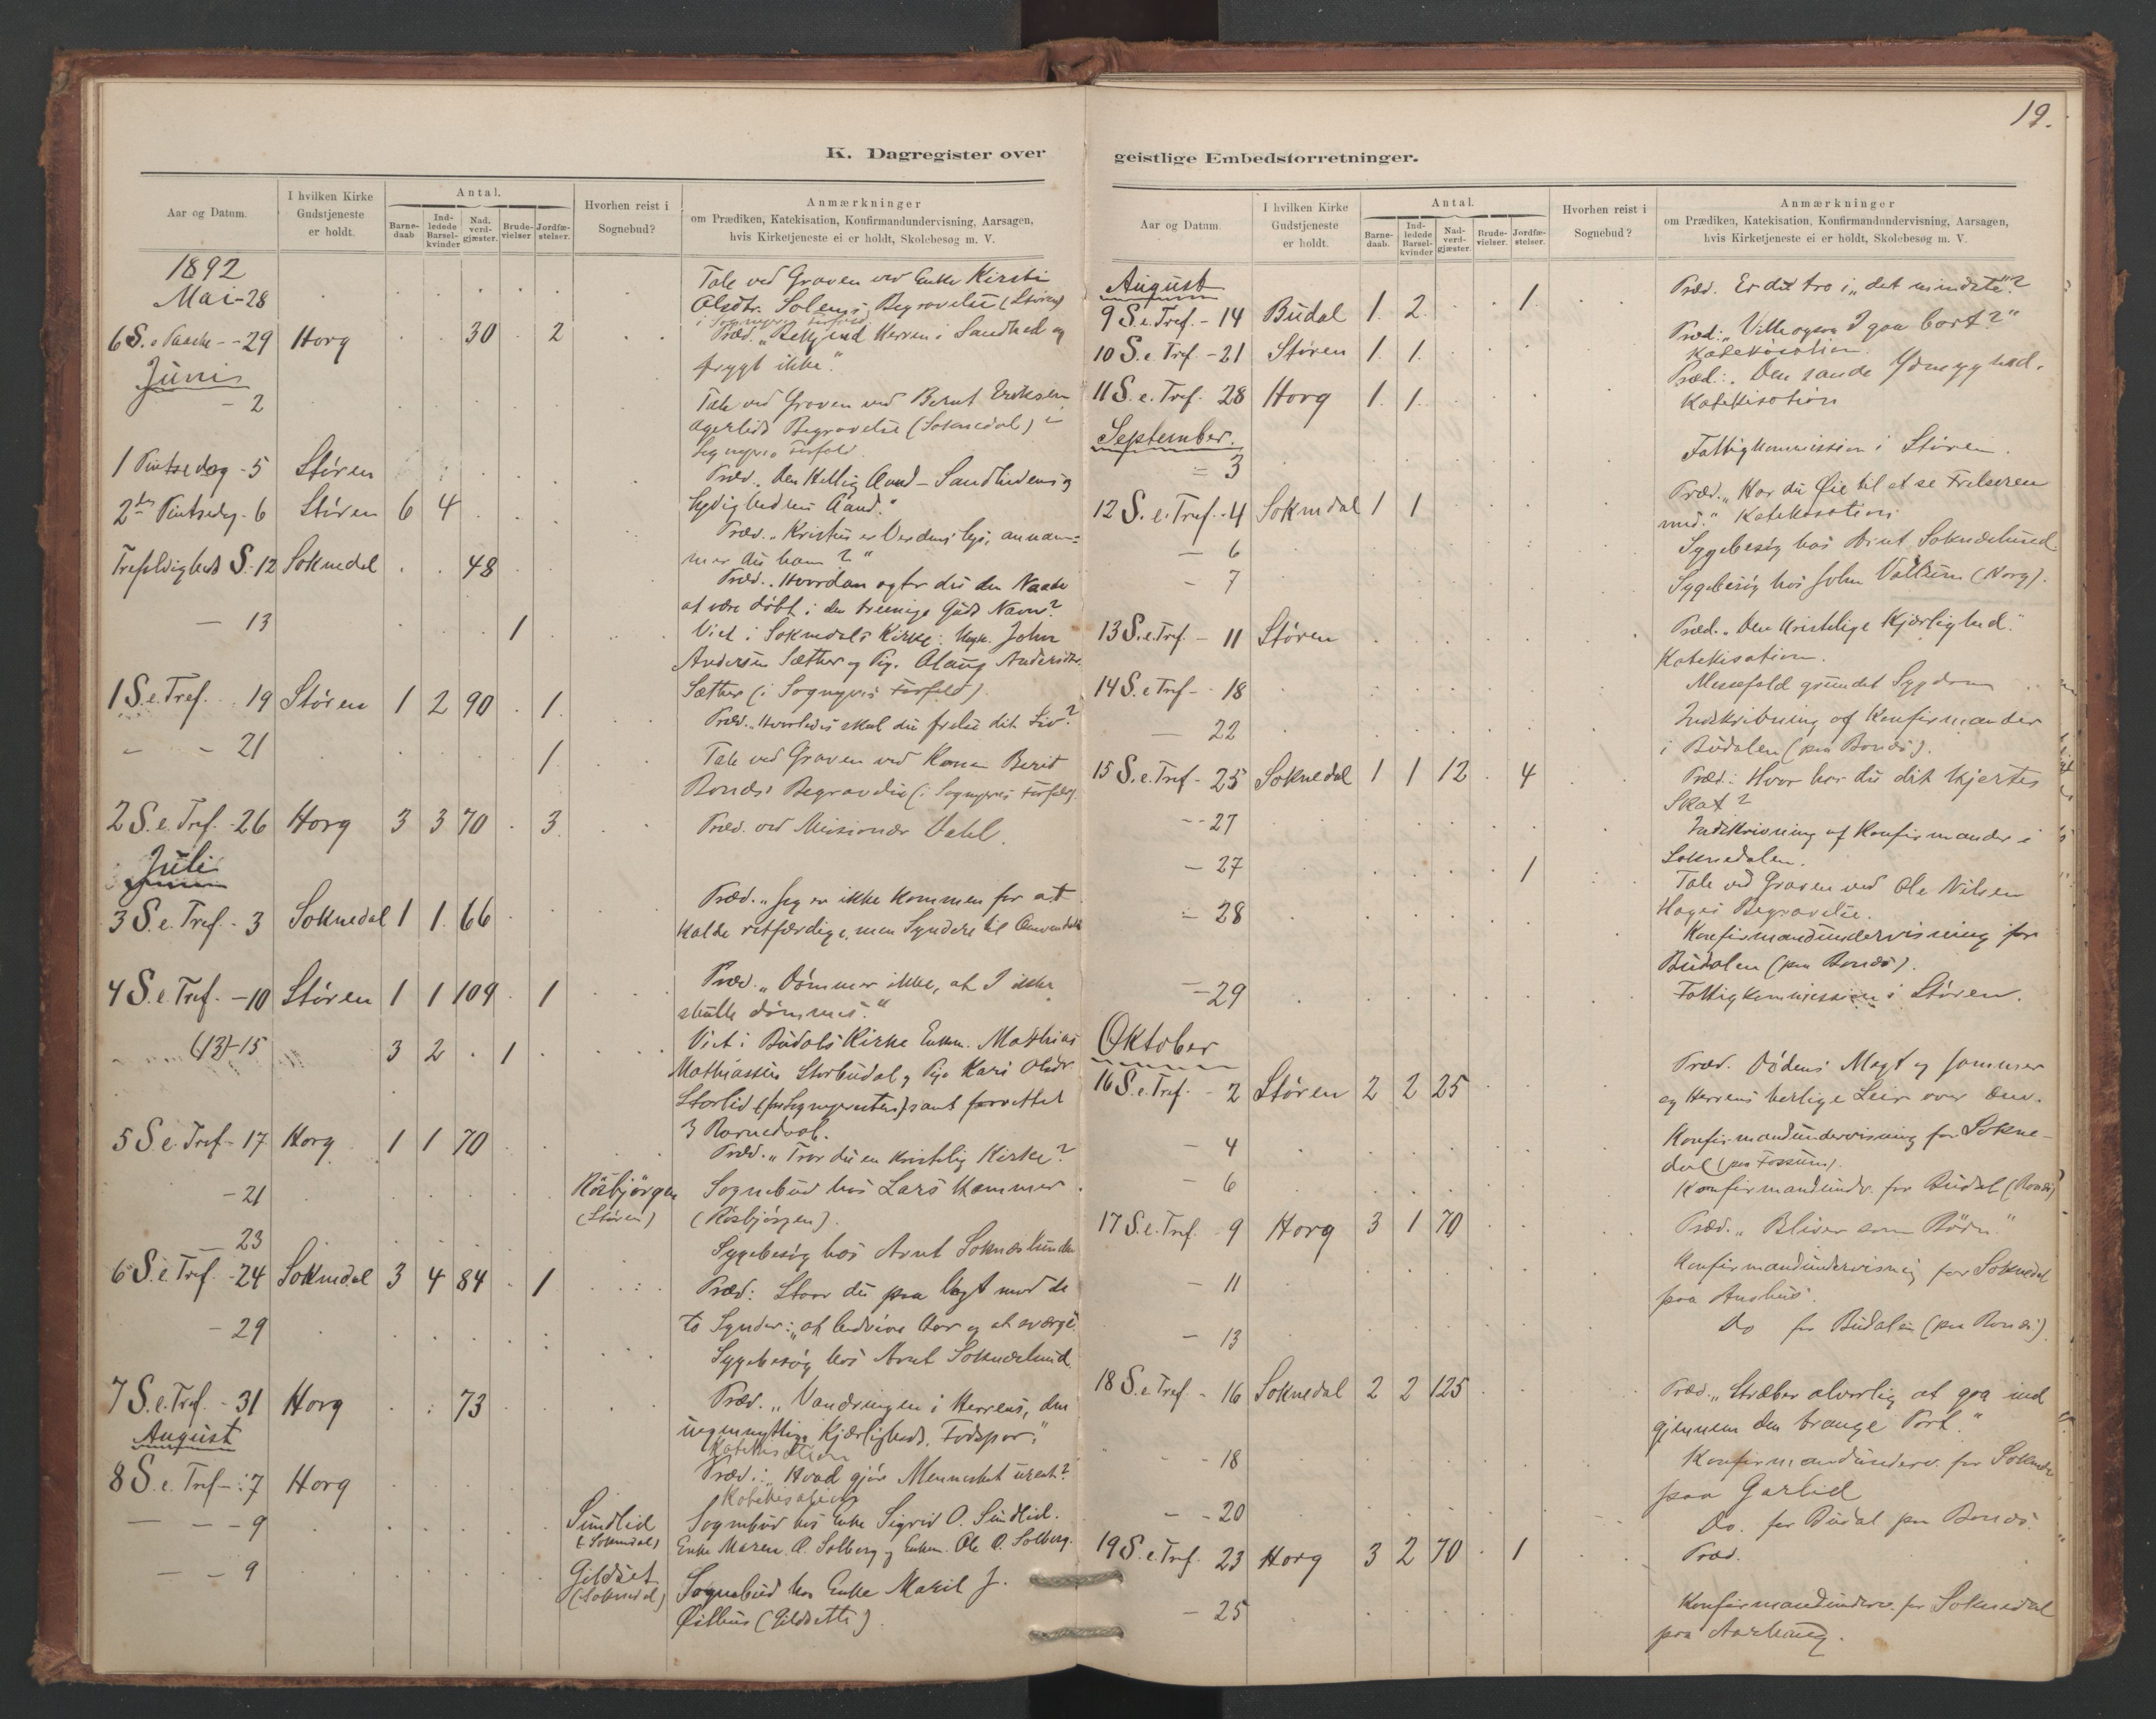 19.
K. Dagregister over
geistlige Embedsforretninger.
Aar og Datum.
I hvilken Kirke Gudstjeneste er holdt.
Antal.
Barne-daab
Ind-ledede Barsel-kvinder
Nad.verd-gjæster.
Brude-vielser
Jordfæ-stelser.
Hvorhen reist i Sognebud?
Anmærkninger
om Prædiken, Katekisation, Konfirmandundervisning, Aarsagen,
hvis Kirketjeneste ei er holdt, Skolebesøg m. V.
1892
Mai-28
Tale ved Graven ved Enke Kirsti
Olsdtr. Solems Begravelse (Støren)
6 S. e Paaske - -29 Horg 30 2
Præd. "Bekjend Herren i Sandhed og
frygt ikke."
Juni
- 2
Tale ved Graven ved Bernt Eriksen
Begravelse (Soknedal) i
Sogneprs Forfald.
1 Pintsedag - 5 Støren
Præd. "Den Hellig Aand - Sandhedens og
Lydighedens Aand."
2den Pintsedag - 6 Støren 6 4
Præd. "Kristus er Verdens Lys, annam-
mer du ham?"
Trefoldigheds S. - 12 Soknedal 48
Præd. "Hvordan agter du den Naade
at være døbt i den treenige Guds Navn?
- 13 1
Viet i Soknedals Kirke: Ungk. John
Andersen Sæther og Pig. Olaug Andersdtr.
Sæther (i Sogneprs Forfald).
1 S. e. Tref. - 19 Støren 1 2 90 1
Præd. "Hvorledes skal du frelse dit Liv?
- - 21 1
Tale ved Graven ved Konen Berit
Bonæs Begravelse (i Sogneprs Forfald).
2 S. e. Tref. - 26 Horg 3 3 70 3
Præd. ved Missionær Vahl.
Juli
3 S. e. Tref - 3 Soknedal 1 1 66
Præd. "Jeg er ikke kommen for at
kalde retfærdige, men Syndere til Omvendelse
4 S. e. Tref. - 10 Støren 1 1 109 1
Præd. "Dømmer ikke, at I ikke
skulle dømmes."
(13)-15 3 2 1
Viet i Budals Kirke Enkm. Mathias
Mathiassen Storbudal og Pige Kari Olsdr
Storlid (for Sognepresten) samt forrettet
3 Barnedaab.
5 S e. Tref - 17 Horg 1 1 70
Præd. "Tror du en kristelig Kirke?
- 21 Røsbjørgen
(Støren)
Sognebud hos Lars Hammer
(Røsbjørgen).
- 23
Sygebesøg hos Arnt Soknæslunden
6 S. e Tref. - 24 Soknedal 3 4 84 1
Præd: Staar du paa Vagt mod de
to Synder: "at bedrive Hor og at sværge.
- 29
Sygebesøg hos Arnt Soknæslund.
7 S. e. Tref. - 31 Horg 73
Præd. "Vandringen i Herrens, den
uegennyttige Kjærligheds, Fodspor."
Katekisation
August
8 S. e. Tref - 7 Horg
Præd.: "Hvad gjør Mennesket urent?
Katekisation
- - - 9 Sundlid
(Soknedal)
Sognebud hos Enke Sigrid O. Sundlid.
Enke Maren O. Solberg og Enkm. Ole O. Solberg.
- - 9 Gildset
(Soknedal)
Sognebud hos Enke Marit J.
Østhus (Gildsette).
Aar og Datum.
I hvilken Kirke Gudstjeneste er holdt.
Antal.
Barne-daab.
Ind-ledede Barsel-kvinder
Nad-verd-gjæster.
Brude-vielser.
Jordfæ-stelser.
Hvorhen reist i Sognebud?
Anmærkninger
om Prædiken, Katekisation, Konfirmandundervisning, Aarsagen,
hvis Kirketjeneste ei er holdt, Skolebesøg m. V.
August
9 S. e. Tref. - 14 Budal 1 2 1
Præd. Er du tro i "det mindste"?
10 S. e. Tref - 21 Støren 1 1
Præd: "Ville ogsaa I gaa bort?"
Katekisation.
11 S. e. Tref. 28 Horg 1 1
Præd.: Den sande Ydmyghed.
Katekisation
September.
- 3
Fattigkommission i Støren.
12 S. e. Tref. - 4 Soknedal 1 1
Præd. "Har du Øie til at se Frelseren
med." Katekisation
- 6
Sygebesøg hos Arnt Soknæslund
- 7
Sygebesøg hos John Valkum (Horg).
13 S. e Tref. - 11 Støren
Præd. "Den kristelige Kjærlighed."
Katekisation.
14 S. e Tref - - 18
Messefald grundet Sygdom
- 22
Indskrivning af Konfirmander
i Budalen (paa Bonæs).
15 S. e. Tref - 25 Soknedal 1 1 12 4
Præd.: Hvor har du dit Hjertes
Skat?
- - 27
Indskrivning af Konfirmander i
Soknedalen.
- 27 1
Tale ved Graven ved Ole Nilsen
Hages Begravelse.
- 28
Konfirmandundervisning for
Budalen (paa Bonæs).
- 29
Fattigkommission i Støren.
Oktober
16 S. e Tref. - 2 Støren 2 2 25
Præd. Dødens Magt og Jammer
og Herrens herlige Seir over den.
- 4
Konfirmandundervisning for Sokne-
dal (paa Fossum).
- 6
Konfirmandundv. for Budal (Bonæs)
17 S. e. Tref. - 9 Horg 3 1 70
Præd. "Bliver som Børn"
- 11
Konfirmandundervisning for Soknedal
paa Aushus.
- 13
Do for Budalen (paa Bonæs).
18 S. e Tref - 16 Soknedal 2 2 125
Præd. "Stræber alvorlig at gaa ind
gjennem den trange Port."
- - 18
Konfirmandunderv. for Soknedal
paa Garlid
- - 20
Do. for Budal paa Bonæs.
19 S. e Tref. 23 Horg 3 2 70 1
Præd.
- 25
Konfirmandunderv. for Soknedal
paa Aarhaug.